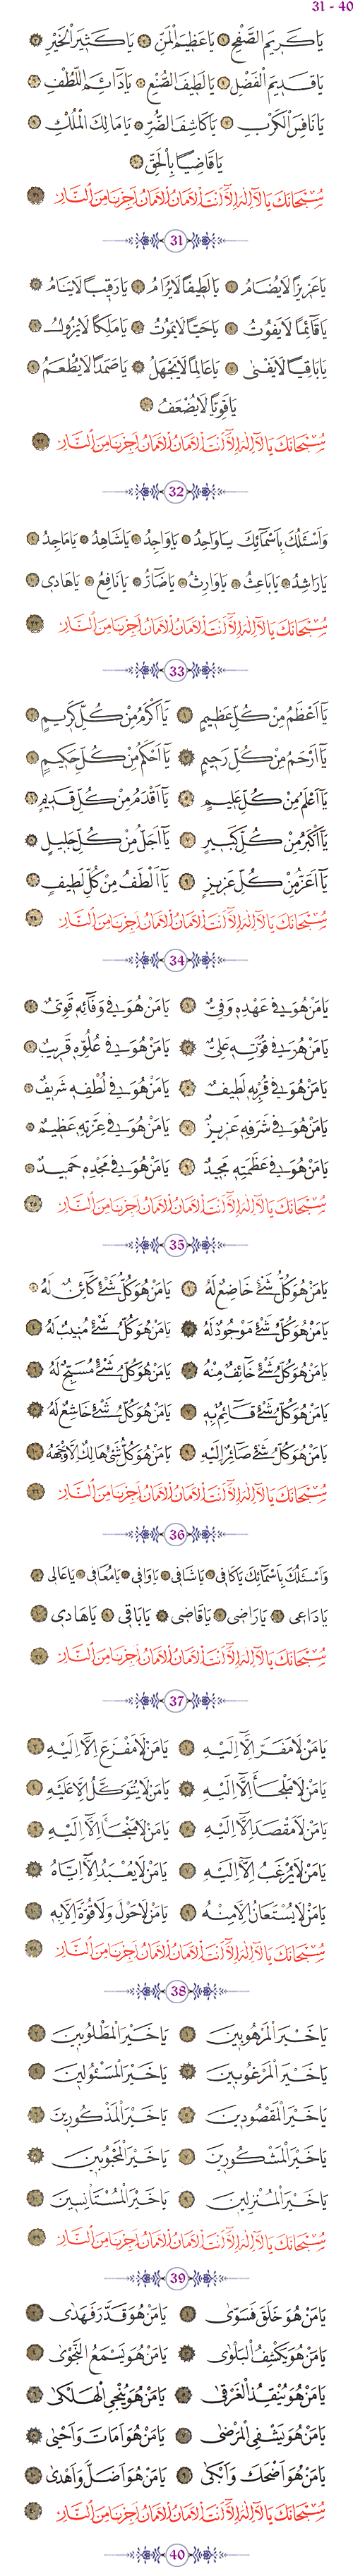 31 - 40
يَا كَرِيمَ الصَّفْحِ يَا عَظِيمَ الْمَنِّ يَا كَثِيرَ الْخَيْرِ
يَا قَدِيمَ الْفَضْلِ يَا لَطِيفَ الصُّنْعِ يَا دَائِمَ اللُّطْفِ
يَا نَافِسَ الْكَرْبِ يَا كَاشِفَ الضُّرِّ يَا مَالِكَ الْمُلْكِ
يَا قَاضِيًا بِالْحَقِّ
سُبْحَانَكَ يَا لَآ اِلٰهَ اِلَّآ اَنْتَ اَلْاَمَانُ الْاَمَانُ اَجِرْنَا مِنَ النَّارِ
31
يَا عَزِيزًا لَا يُضَامُ يَا لَطِيفًا لَا يُرَامُ يَا رَقِيبًا لَا يَنَامُ
يَا قَآئِمًا لَا يَفُوتُ يَا حَيًّا لَا يَمُوتُ يَا مَلِكًا لَا يَزُولُ
يَا بَاقِيًا لَا يَفْنٰى يَا عَالِمًا لَا يَجْهَلُ يَا صَمَدًا لَا يُطْعَمُ
يَا قَوِيًّا لَا يُضْعَفُ
سُبْحَانَكَ يَا لَآ اِلٰهَ اِلَّآ اَنْتَ اَلْاَمَانُ الْاَمَانُ اَجِرْنَا مِنَ النَّارِ
32
وَاَسْئَلُكَ بِاَسْمَآئِكَ يَا وَاحِدُ يَا وَاجِدُ يَا شَاهِدُ يَا مَاجِدُ
يَا رَاشِدُ يَا بَاعِثُ يَا وَارِثُ يَا ضَآرُّ يَا نَافِعُ يَا هَادِى
سُبْحَانَكَ يَا لَآ اِلٰهَ اِلَّآ اَنْتَ اَلْاَمَانُ الْاَمَانُ اَجِرْنَا مِنَ النَّارِ
33
يَآ اَعْظَمُ مِنْ كُلِّ عَظِيمٍ يَآ اَكْرَمُ مِنْ كُلِّ كَرِيمٍ
يَآ اَرْحَمُ مِنْ كُلِّ رَحِيمٍ يَآ اَحْكَمُ مِنْ كُلِّ حَكِيمٍ
يَآ اَعْلَمُ مِنْ كُلِّ عَلِيمٍ يَآ اَقْدَمُ مِنْ كُلِّ قَدِيمٍ
يَآ اَكْبَرُ مِنْ كُلِّ كَبِيرٍ يَآ اَجَلُّ مِنْ كُلِّ جَلِيلٍ
يَآ اَعَزُّ مِنْ كُلِّ عَزِيزٍ يَآ اَلْطَفُ مِنْ كُلِّ لَطِيفٍ
سُبْحَانَكَ يَا لَآ اِلٰهَ اِلَّآ اَنْتَ اَلْاَمَانُ الْاَمَانُ اَجِرْنَا مِنَ النَّارِ
34
يَا مَنْ هُوَ فِى عَهْدِهِ وَفِىٌّ يَا مَنْ هُوَ فِى وَفَآئِهِ قَوِىٌّ
يَا مَنْ هُوَ فِى قُوَّتِهِ عَلِىٌّ يَا مَنْ هُوَ فِى عُلُوِّهِ قَرِيبٌ
يَا مَنْ هُوَ فِى قُرْبِهِ لَطِيفٌ يَا مَنْ هُوَ فِى لُطْفِهِ شَرِيفٌ
يَا مَنْ هُوَ فِى شَرَفِهِ عَزِيزٌ يَا مَنْ هُوَ فِى عِزَّتِهِ عَظِيمٌ
يَا مَنْ هُوَ فِى عَظَمَتِهِ مَجِيدٌ يَا مَنْ هُوَ فِى مَجْدِهِ حَمِيدٌ
سُبْحَانَكَ يَا لَآ اِلٰهَ اِلَّآ اَنْتَ اَلْاَمَانُ الْاَمَانُ اَجِرْنَا مِنَ النَّارِ
35
يَا مَنْ هُوَ كُلُّ شَىْءٍ خَاضِعٌ لَهُ يَا مَنْ هُوَ كُلُّ شَىْءٍ كَآئِنٌ لَهُ
يَا مَنْ هُوَ كُلُّ شَىْءٍ مَوْجُودٌ لَهُ يَا مَنْ هُوَ كُلُّ شَىْءٍ مُنِيبٌ لَهُ
يَا مَنْ هُوَ كُلُّ شَىْءٍ خَآئِفٌ مِنْهُ يَا مَنْ هُوَ كُلُّ شَىْءٍ مُسَبِّحٌ لَهُ
يَا مَنْ هُوَ كُلُّ شَىْءٍ قَآئِمٌ بِهِ يَا مَنْ هُوَ كُلُّ شَىْءٍ خَاشِعٌ لَهُ
يَا مَنْ هُوَ كُلُّ شَىْءٍ صَآئِرٌ اِلَيْهِ يَا مَنْ هُوَ كُلُّ شَىْءٍ هَالِكٌ اِلَّا وَجْهَهُ
سُبْحَانَكَ يَا لَآ اِلٰهَ اِلَّآ اَنْتَ اَلْاَمَانُ الْاَمَانُ اَجِرْنَا مِنَ النَّارِ
36
وَاَسْئَلُكَ بِاَسْمَآئِكَ يَا كَافِى يَا شَافِى يَا وَافِى يَا مُعَافِى يَا عَالِى
يَا دَاعِى يَا رَاضِى يَا قَاضِى يَا بَاقِى يَا هَادِى
سُبْحَانَكَ يَا لَآ اِلٰهَ اِلَّآ اَنْتَ اَلْاَمَانُ الْاَمَانُ اَجِرْنَا مِنَ النَّارِ
37
يَا مَنْ لَا مَفَرَّ اِلَّآ اِلَيْهِ يَا مَنْ لَا مَفْزَعَ اِلَّآ اِلَيْهِ
يَا مَنْ لَا مَلْجَأَ اِلَّآ اِلَيْهِ يَا مَنْ لَا يُتَوَكَّلُ اِلَّا عَلَيْهِ
يَا مَنْ لَا مَقْصَدَ اِلَّآ اِلَيْهِ يَا مَنْ لَا مَنْجَأَ اِلَّآ اِلَيْهِ
يَا مَنْ لَا يُرْغَبُ اِلَّآ اِلَيْهِ يَا مَنْ لَا يُعْبَدُ اِلَّآ اِيَّاهُ
يَا مَنْ لَا يُسْتَعَانُ اِلَّا مِنْهُ يَا مَنْ لَا حَوْلَ وَلَا قُوَّةَ اِلَّا بِهِ
سُبْحَانَكَ يَا لَآ اِلٰهَ اِلَّآ اَنْتَ اَلْاَمَانُ الْاَمَانُ اَجِرْنَا مِنَ النَّارِ
38
يَا خَيْرَ الْمَرْهُوبِينَ يَا خَيْرَ الْمَطْلُوبِينَ
يَا خَيْرَ الْمَرْغُوبِينَ يَا خَيْرَ الْمَسْئُولِينَ
يَا خَيْرَ الْمَقْصُودِينَ يَا خَيْرَ الْمَذْكُورِينَ
يَا خَيْرَ الْمَشْكُورِينَ يَا خَيْرَ الْمَحْبُوبِينَ
يَا خَيْرَ الْمُنْزِلِينَ يَا خَيْرَ الْمُسْتَأْنِسِينَ
سُبْحَانَكَ يَا لَآ اِلٰهَ اِلَّآ اَنْتَ اَلْاَمَانُ الْاَمَانُ اَجِرْنَا مِنَ النَّارِ
39
يَا مَنْ هُوَ خَلَقَ فَسَوّٰى يَا مَنْ هُوَ قَدَّرَ فَهَدٰى
يَا مَنْ هُوَ يَكْشِفُ الْبَلْوٰى يَا مَنْ هُوَ يَسْمَعُ النَّجْوٰى
يَا مَنْ هُوَ يُنْقِذُ الْغَرْقٰى يَا مَنْ هُوَ يُنْجِى الْهَلْكٰى
يَا مَنْ هُوَ يَشْفِى الْمَرْضٰى يَا مَنْ هُوَ اَمَاتَ وَاَحْيٰى
يَا مَنْ هُوَ اَضْحَكَ وَاَبْكٰى يَا مَنْ هُوَ اَضَلَّ وَاَهْدٰى
سُبْحَانَكَ يَا لَآ اِلٰهَ اِلَّآ اَنْتَ اَلْاَمَانُ الْاَمَانُ اَجِرْنَا مِنَ النَّارِ
40